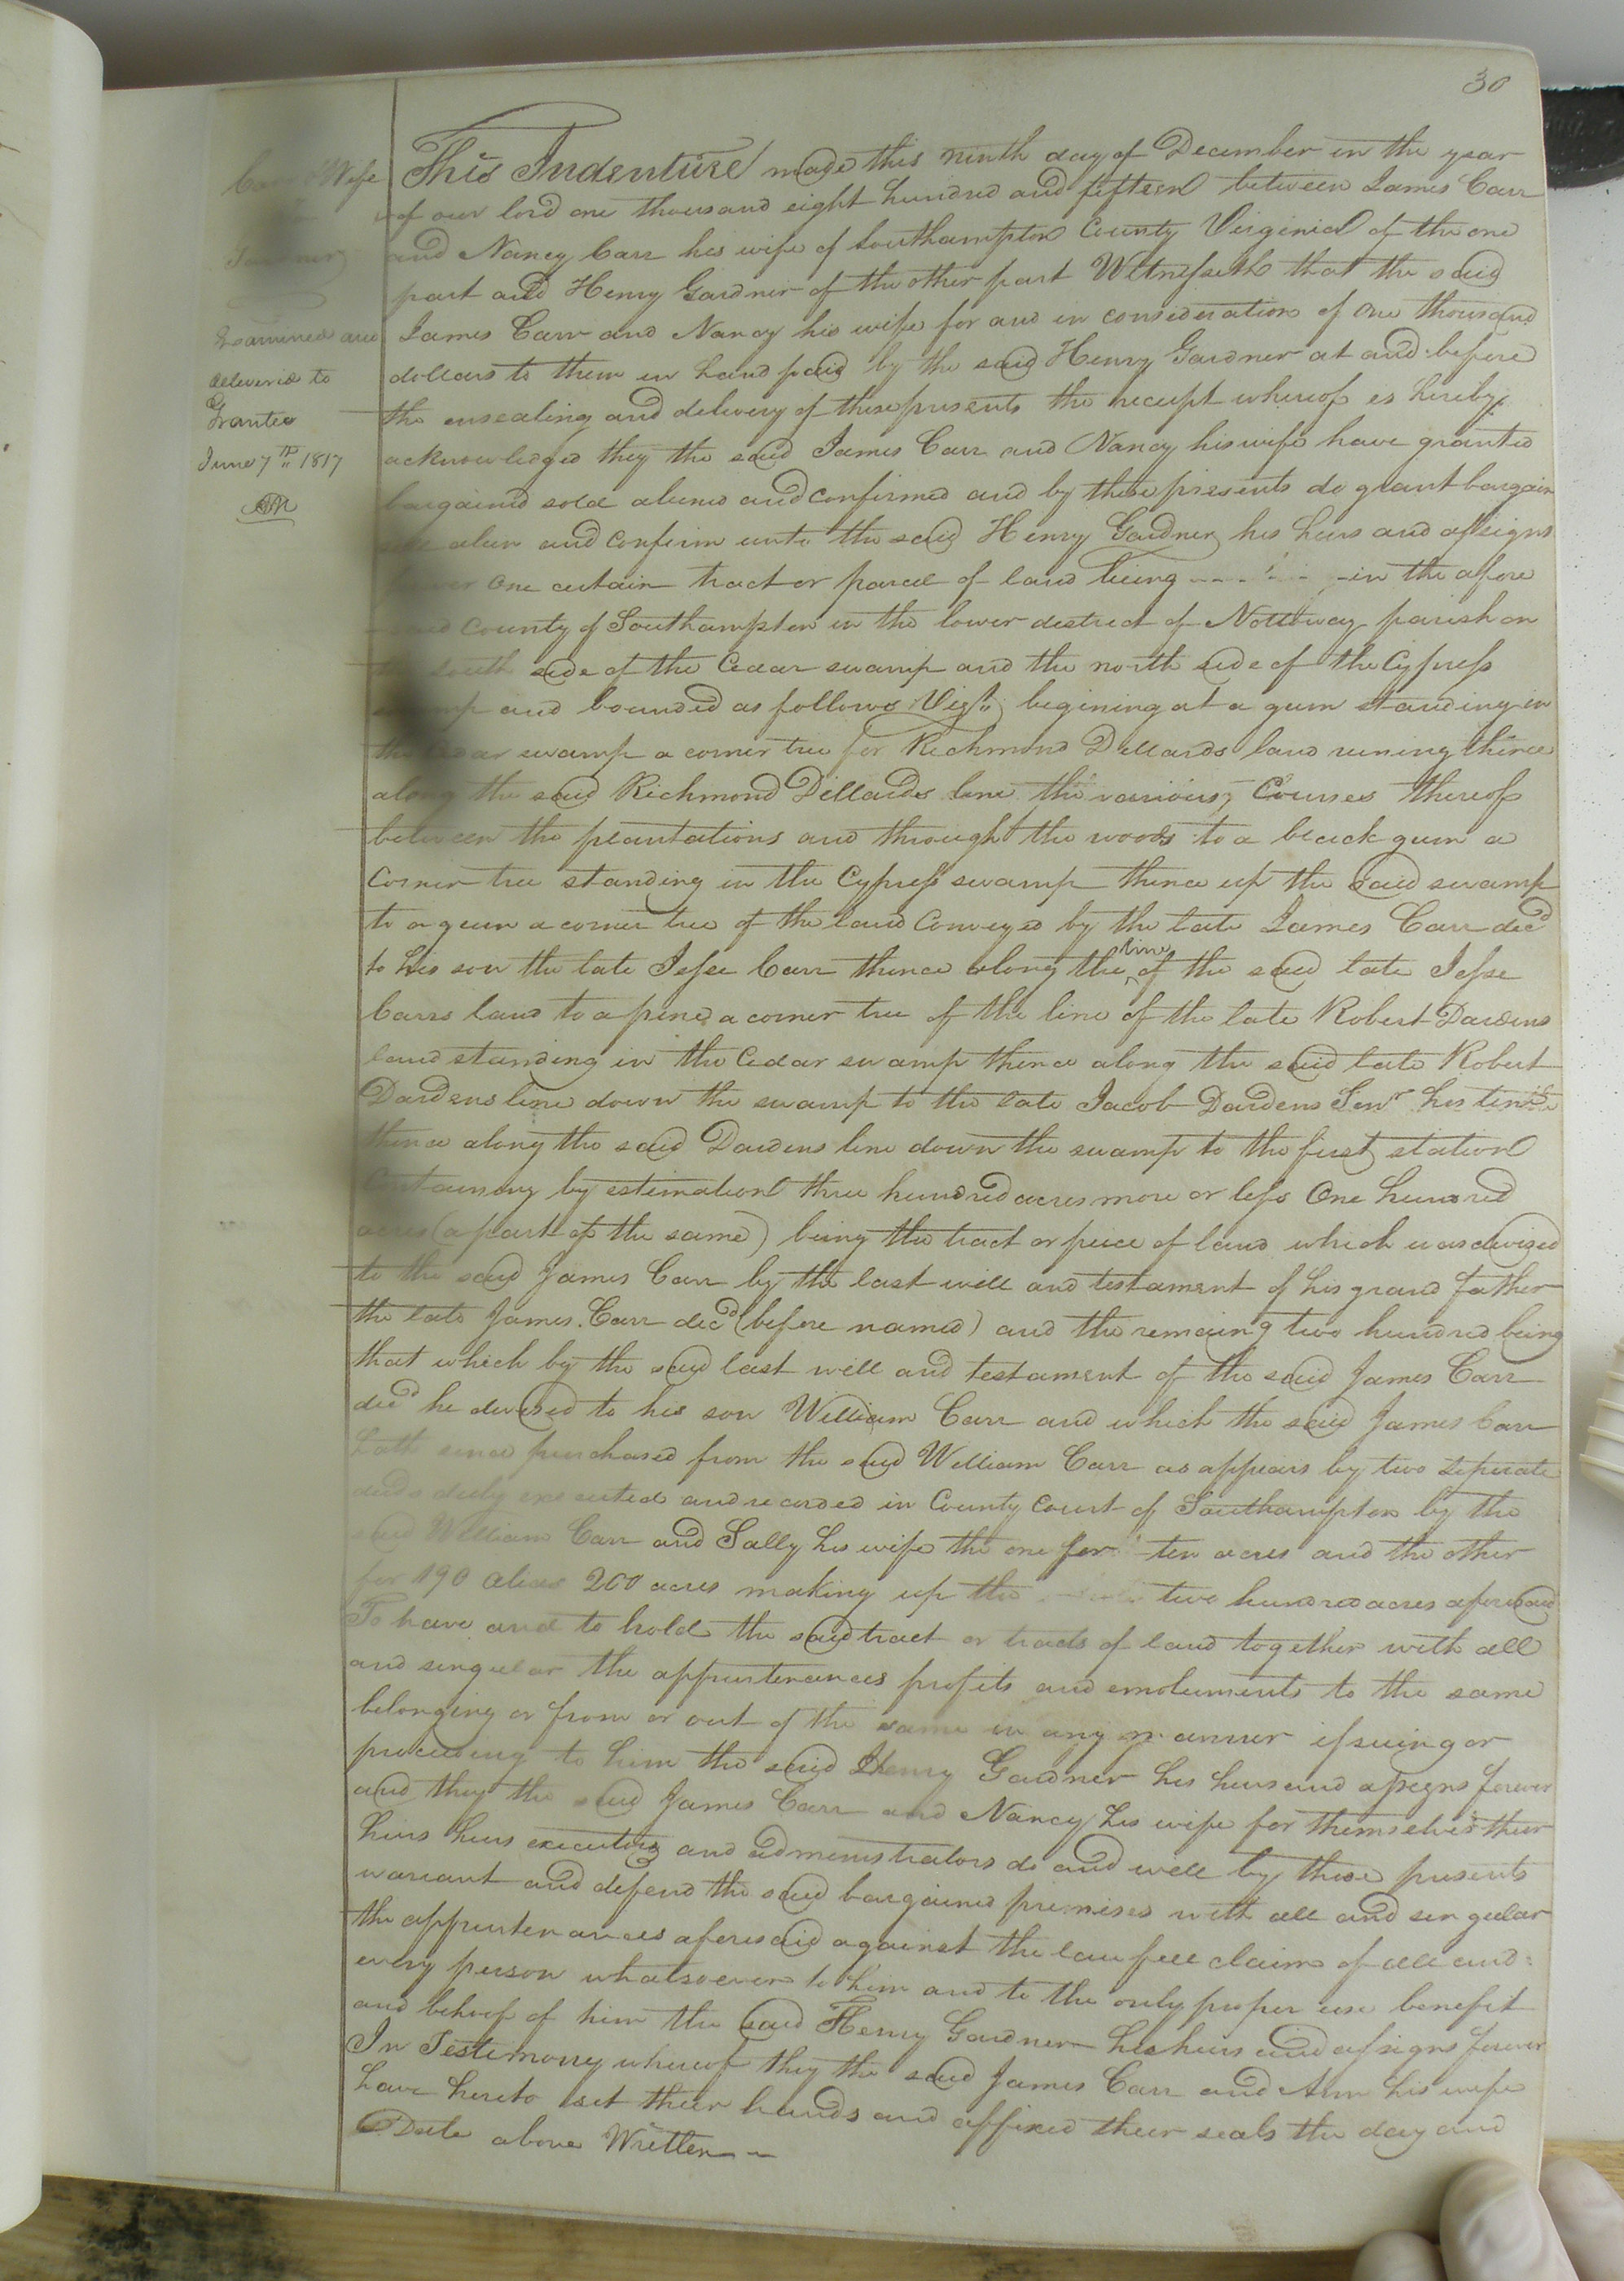 30
Wife
Examined and
delivered to
Grantee
June 7th 1817
This Indenture made this ninth day of December in the year
of our lord one thousand eight hundred and fifteen between James Carr
and Nancy Carr his wife of Southampton County Virginia of the one
part and Henry Gardner of the other part Witnesseth that the said
James Carr and Nancy his wife for and in consideration of one thousand
dollars to them in hand paid by the said Henry Gardner at and before
the ensealing and delivery of these presents the receipt whereof is hereby
acknowledged they the said James Carr and Nancy his wife have granted
bargained sold aliened and confirmed and by these presents do grant bargain
alien and confirm unto the said Henry Gardner his heirs and assigns
One certain tract or parcel of land lieing in the afore
County of Southampton in the lower destrect of Nottoway parish on
south side of the Cedar swamp and the north side of the Cypress
and bounded as follows Vizt. begining at a gum standing in
the swamp a corner tree for Richmond Dillards land runing thence
along the said Richmond Dillards line the various Courses thereof
between the plantations and through the woods to a black gum a
Corner tree standing in the Cypress swamp thence up the said swamp
to a gum a corner tree of the land Conveyed by the late James Carr decd
to his son the late Jesse Carr thence along the line of the said late Jesse
Carrs land to a pine a corner tree of the line of the late Robert Dardens
land standing in the Cedar swamp thence along the said late Robert
Dardens line down the swamp to the late Jacob Dardens Senr his line
thence along the said Dardens line down the swamp to the first station
Containing by estimation three hundred acres more or less One hundred
acres (a part of the same) being the tract or peice of land which was devized
to the said James Carr by the last will and testament of his grand father
the late James Carr decd (before named) and the remaing two hundred being
that which by the said last will and testament of the said James Carr
decd he devised to his son William Carr and which the said James Carr
hath since purchased from the said William Carr as appears by two seperate
deeds duly executed and recorded in County Court of Southampton by the
said William Carr and Sally his wife the one for ten acres and the other
for 190 alias 200 acres making up the two hundred acres aforesaid
To have and to hold the said tract or tracts of land together with all
and singular the appurtenances profits and emoluments to the same
belonging or from or out of the same in any manner issuing or
proceeding to him the said Henry Gardner his heirs and assigns forever
and they the said James Carr and Nancy his wife for themselves their
heirs heirs executors and administrators do and will by these presents
warrant and defend the said bargained premises with all and singular
the appurtenances aforesaid against the lawfull claim of all and
every person whatsoever to him and to the only proper use benefit
and behoof of him the said Henry Gardner his heirs and assigns forever
In Testimony whereof they the said James Carr and Ann his wife
have hereto set their hands and affixed their seals the day and
Date above Written